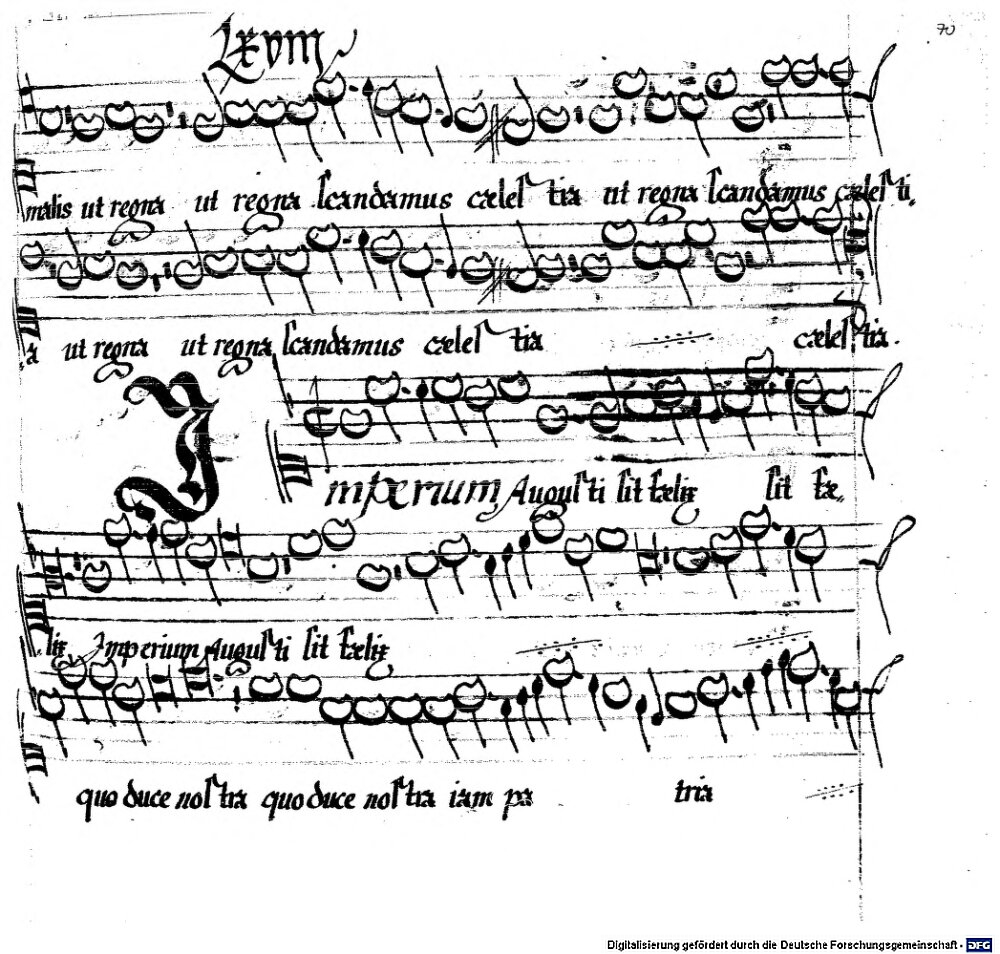 70
Lxvm
malis ut regna ut regna scandamus cælestia ut regna scandamus cælesti,
a ut regna ut regna scandamus cælestia cælestia.
Imperium Augusti sit fælix sit fæ,
lix Imperium Augusti sit fælix
quo duce nostra quo duce nostra iam patria
Digitalisierung gefördert durch die Deutsche Forschungsgemeinschaft - DFG